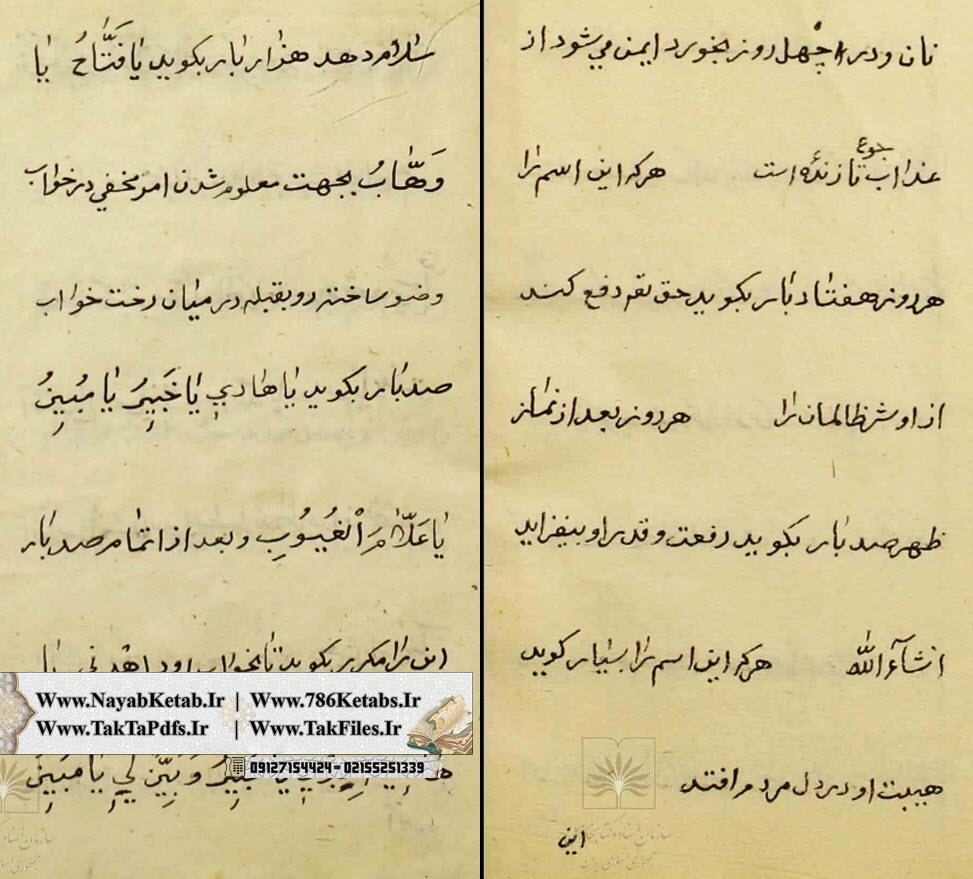 نان و در چهل روز بخورد ایمن می شود از
جوع
عذاب تا زنده است هر که این اسم را
هر روز هفتاد بار بگوید حق تعه دفع کند
از او شر ظالمان را هر روز بعد از نماز
ظهر صد بار بگوید رفعت و قدر او بیفزاید
انشآء الله هر که این اسم را بسیار گوید
هیبت او در دل مردم افتد
این
سلام دهد هزار بار بگوید یا فَتَّاحُ یا
وَهَّابُ بجهت معلوم شدن امر مخفی در خواب
وضو ساخته رو بقبله در میان رخت خواب
صد بار بگوید یا هادي یا خَبِیرُ یا مُبِینُ
یا عَلّامَ الْغُیُوبِ و بعد از اتمام صد بار
این را مکرر بگوید تا بخواب رود اهدنی یا
یا خَبِیرُ وَ بَیِّن لِي یا مُبِینُ
Www.NayabKetab.Ir | Www.786Ketabs.Ir
Www.TakTaPdfs.Ir | Www.TakFiles.Ir
09127154424 - 02155251339